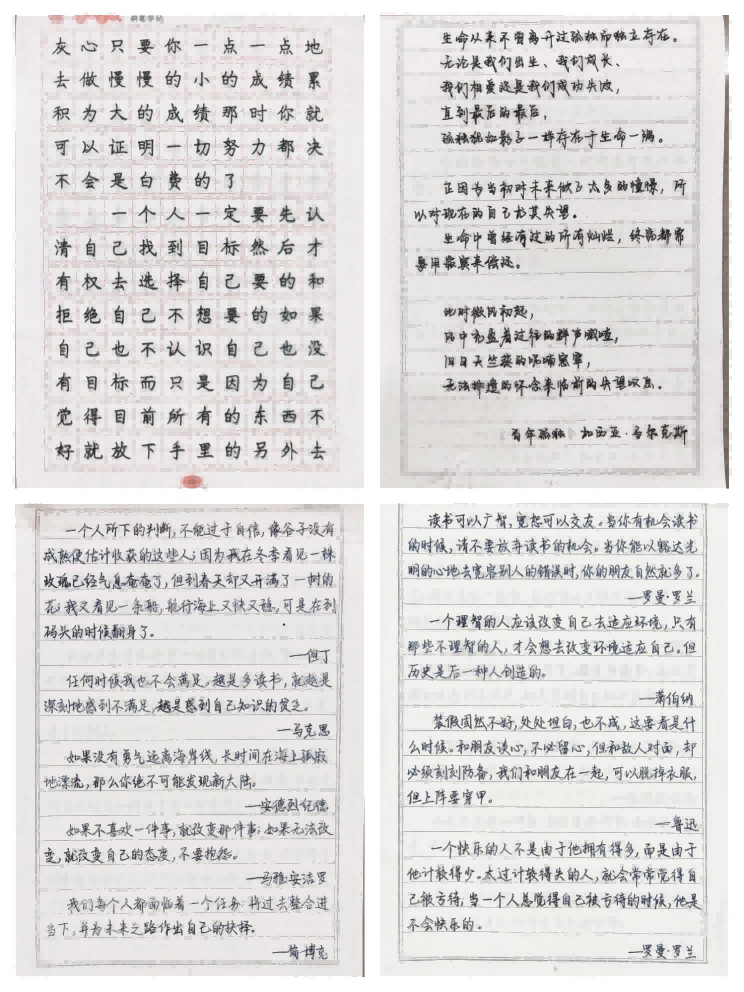 钢笔字帖
灰心只要你一点一点地
去做慢慢的小的成绩累
积为大的成绩那时你就
可以证明一切努力都决
不会是白费的了
一个人一定要先认
清自己找到目标然后才
有权去选择自己要的和
拒绝自己不想要的如果
自己也不认识自己也没
有目标而只是因为自己
觉得目前所有的东西不
好就放下手里的另外去
生命从来不曾离开过孤独而独立存在。
无论是我们出生、我们成长、
我们相爱还是我们成功失败,
直到最后的最后,
孤独犹如影子一样存在于生命一隅。
正因为当初对未来做了太多的憧憬,所
以对现在的自己尤其失望。
生命中曾经有过的所有灿烂,终究都需
要用寂寞来偿还。
此时微风初起,
风中充盈着过往的群声嘁喳,
旧日天竺葵的呢喃窸窣,
无法排遣的怀念来临前的失望叹息。
百年孤独 加西亚·马尔克斯
一个人所下的判断,不能过于自信,像谷子没有
成熟便估计收获的这些人;因为我在冬季看见一株
玫瑰已经气息奄奄了,但到春天却又开满了一树的
花;我又看见一条船,航行海上又快又稳,可是在到
码头的时候翻身了。
—但丁
任何时候我也不会满足。越是多读书,就越是
深刻地感到不满足,越是感到自己知识的贫乏。
—马克思
如果没有勇气远离海岸线,长时间在海上孤寂
地漂流,那么你绝不可能发现新大陆。
—安德烈·纪德
如果不喜欢一件事,就改变那件事;如果无法改
变,就改变自己的态度,不要抱怨。
—马雅·安洁罗
我们每个人都面临着一个任务:将过去整合进
当下,并为未来之路作出自己的抉择。
—简·博克
读书可以广智,宽恕可以交友。当你有机会读书
的时候,请不要放弃读书的机会。当你能以豁达光
明的心地去宽容别人的错误时,你的朋友自然就多了。
—罗曼·罗兰
一个理智的人应该改变自己去适应环境,只有
那些不理智的人,才会想去改变环境适应自己。但
历史是后一种人创造的。
—萧伯纳
装假固然不好,处处坦白,也不成,这要看是什
么时候。和朋友谈心,不必留心,但和敌人对面,却
必须刻刻防备,我们和朋友在一起,可以脱掉衣服,
但上阵要穿甲。
—鲁迅
一个快乐的人不是由于他拥有得多,而是由于
他计较得少。太过计较得失的人,就会常常觉得自
己被亏待;当一个人总觉得自己被亏待的时候,他是
不会快乐的。
—罗曼·罗兰
6